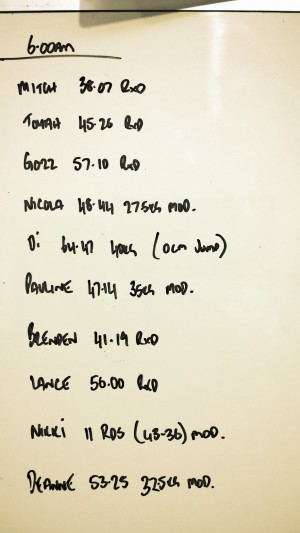 6:00AM
MITCH 38.07 RXD
TOMAH 45.26 RXD
GOZZ 57.10 RXD
NICOLA 48.44 27.5KG MOD.
Di 64.47 40KG (0CM JUMP)
PAULINE 47.14 35KG MOD.
BRENDEN 41.19 RXD
LANCE 50.00 RXD
NIKKI 11 RDS (43-36) MOD.
DEANNE 53.25 32.5KG MOD.